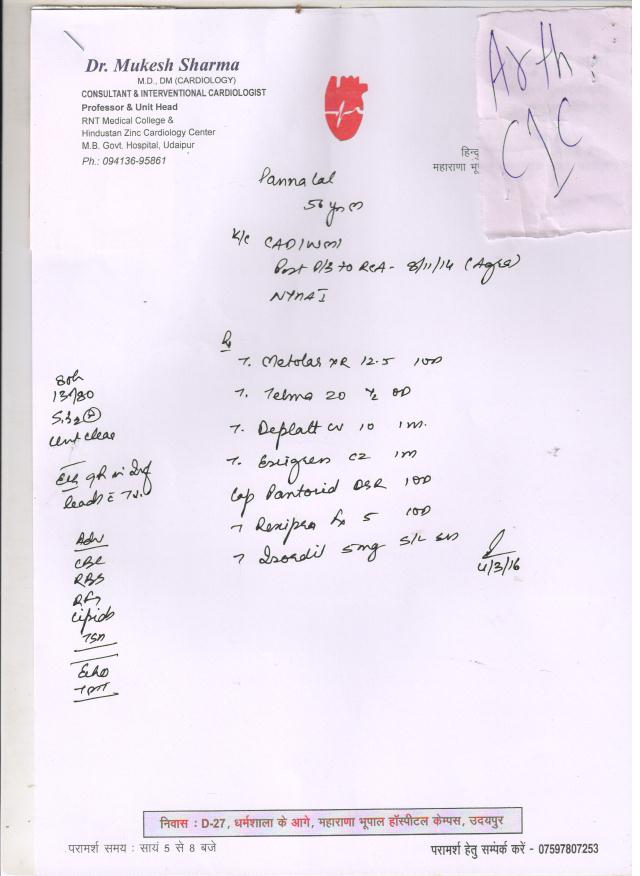 Dr. Mukesh Sharma
M.D., DM (CARDIOLOGY)
CONSULTANT & INTERVENTIONAL CARDIOLOGIST
Professor & Unit Head
RNT Medical College &
Hindustan Zinc Cardiology Center
M.B. Govt. Hospital, Udaipur
Ph.: 094136-95861
Arth
हिन्दु
महाराणा भू
Panna Lal
K/C CAD/IWMI
Post to RCA - 8/11/14 (Agra)
NYHA I
Rx
T. Metolar XR 12.5 1OD
T. Telma 20 ½ OD
T. Deplatt CV 10
T. CZ
Cap Pantocid DSR 1OD
T 5 1OD
T Isordil 5mg S/L
4/3/16
80/
130/80
S1S2
clear
leads
Adv
CBC
RBS
RFT
Lipids
TSH
Echo
TMT
निवास : D-27, धर्मशाला के आगे, महाराणा भूपाल हॉस्पीटल केम्पस, उदयपुर
परामर्श समय : सायं 5 से 8 बजे
परामर्श हेतु सम्पंर्क करें - 07597807253